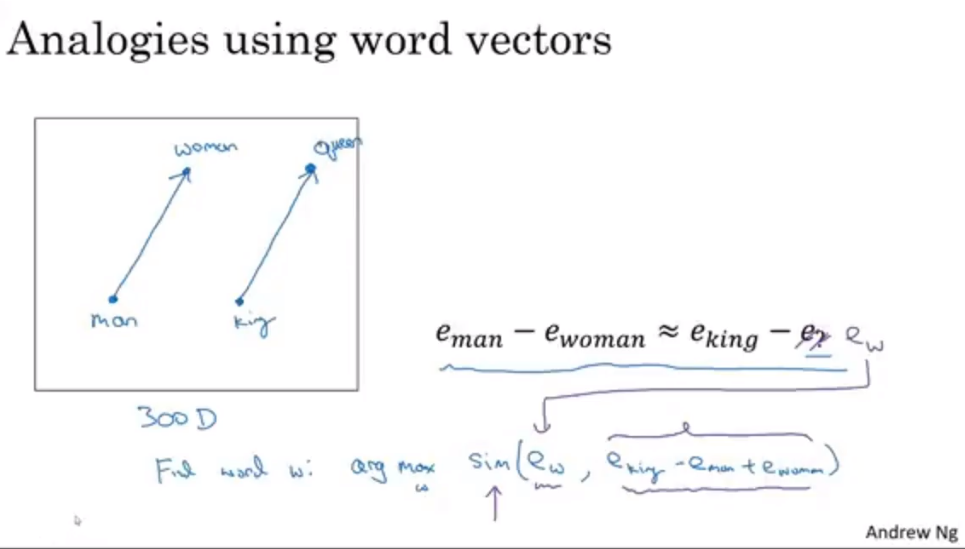 Analogies using word vectors
woman
queen
man
king
e_man − e_woman ≈ e_king − e_? e_w
300 D
Find word w: arg max_w sim(e_w, e_king - e_man + e_woman)
Andrew Ng